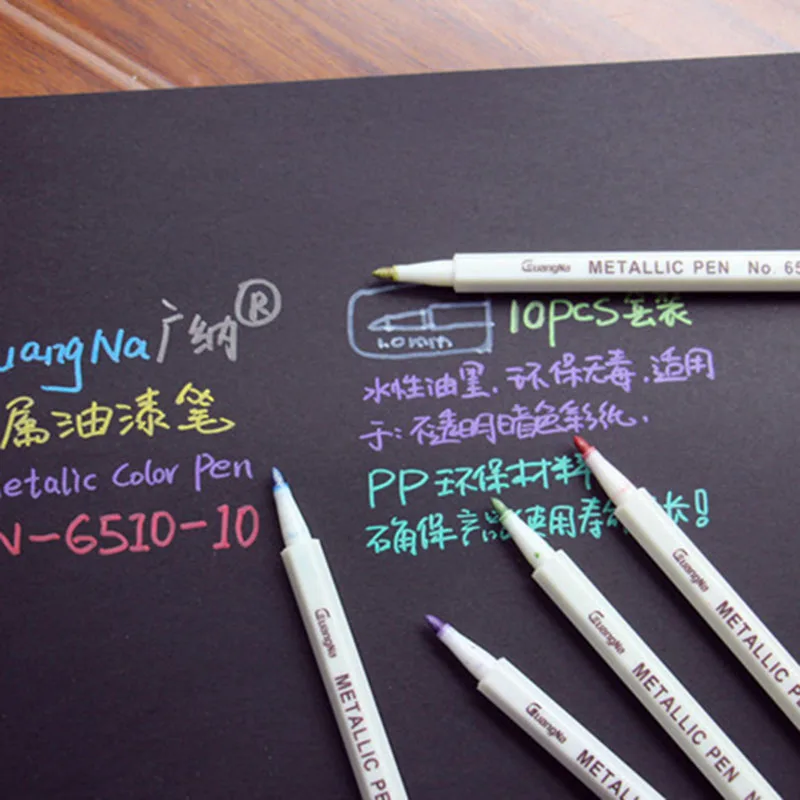 uangNa广纳®
属油漆笔
etalic Color Pen
N-6510-10
GuangNa METALLIC PEN No. 65
1.0mm
10PCS套装
水性油墨,环保无毒,适用
于:不透明暗色彩纸.
PP环保材料
确保产品使用寿命更长!
GuangNa METALLIC PE
GuangNa METALLIC
GuangNa METALLIC PEN N
GuangNa METALLIC P